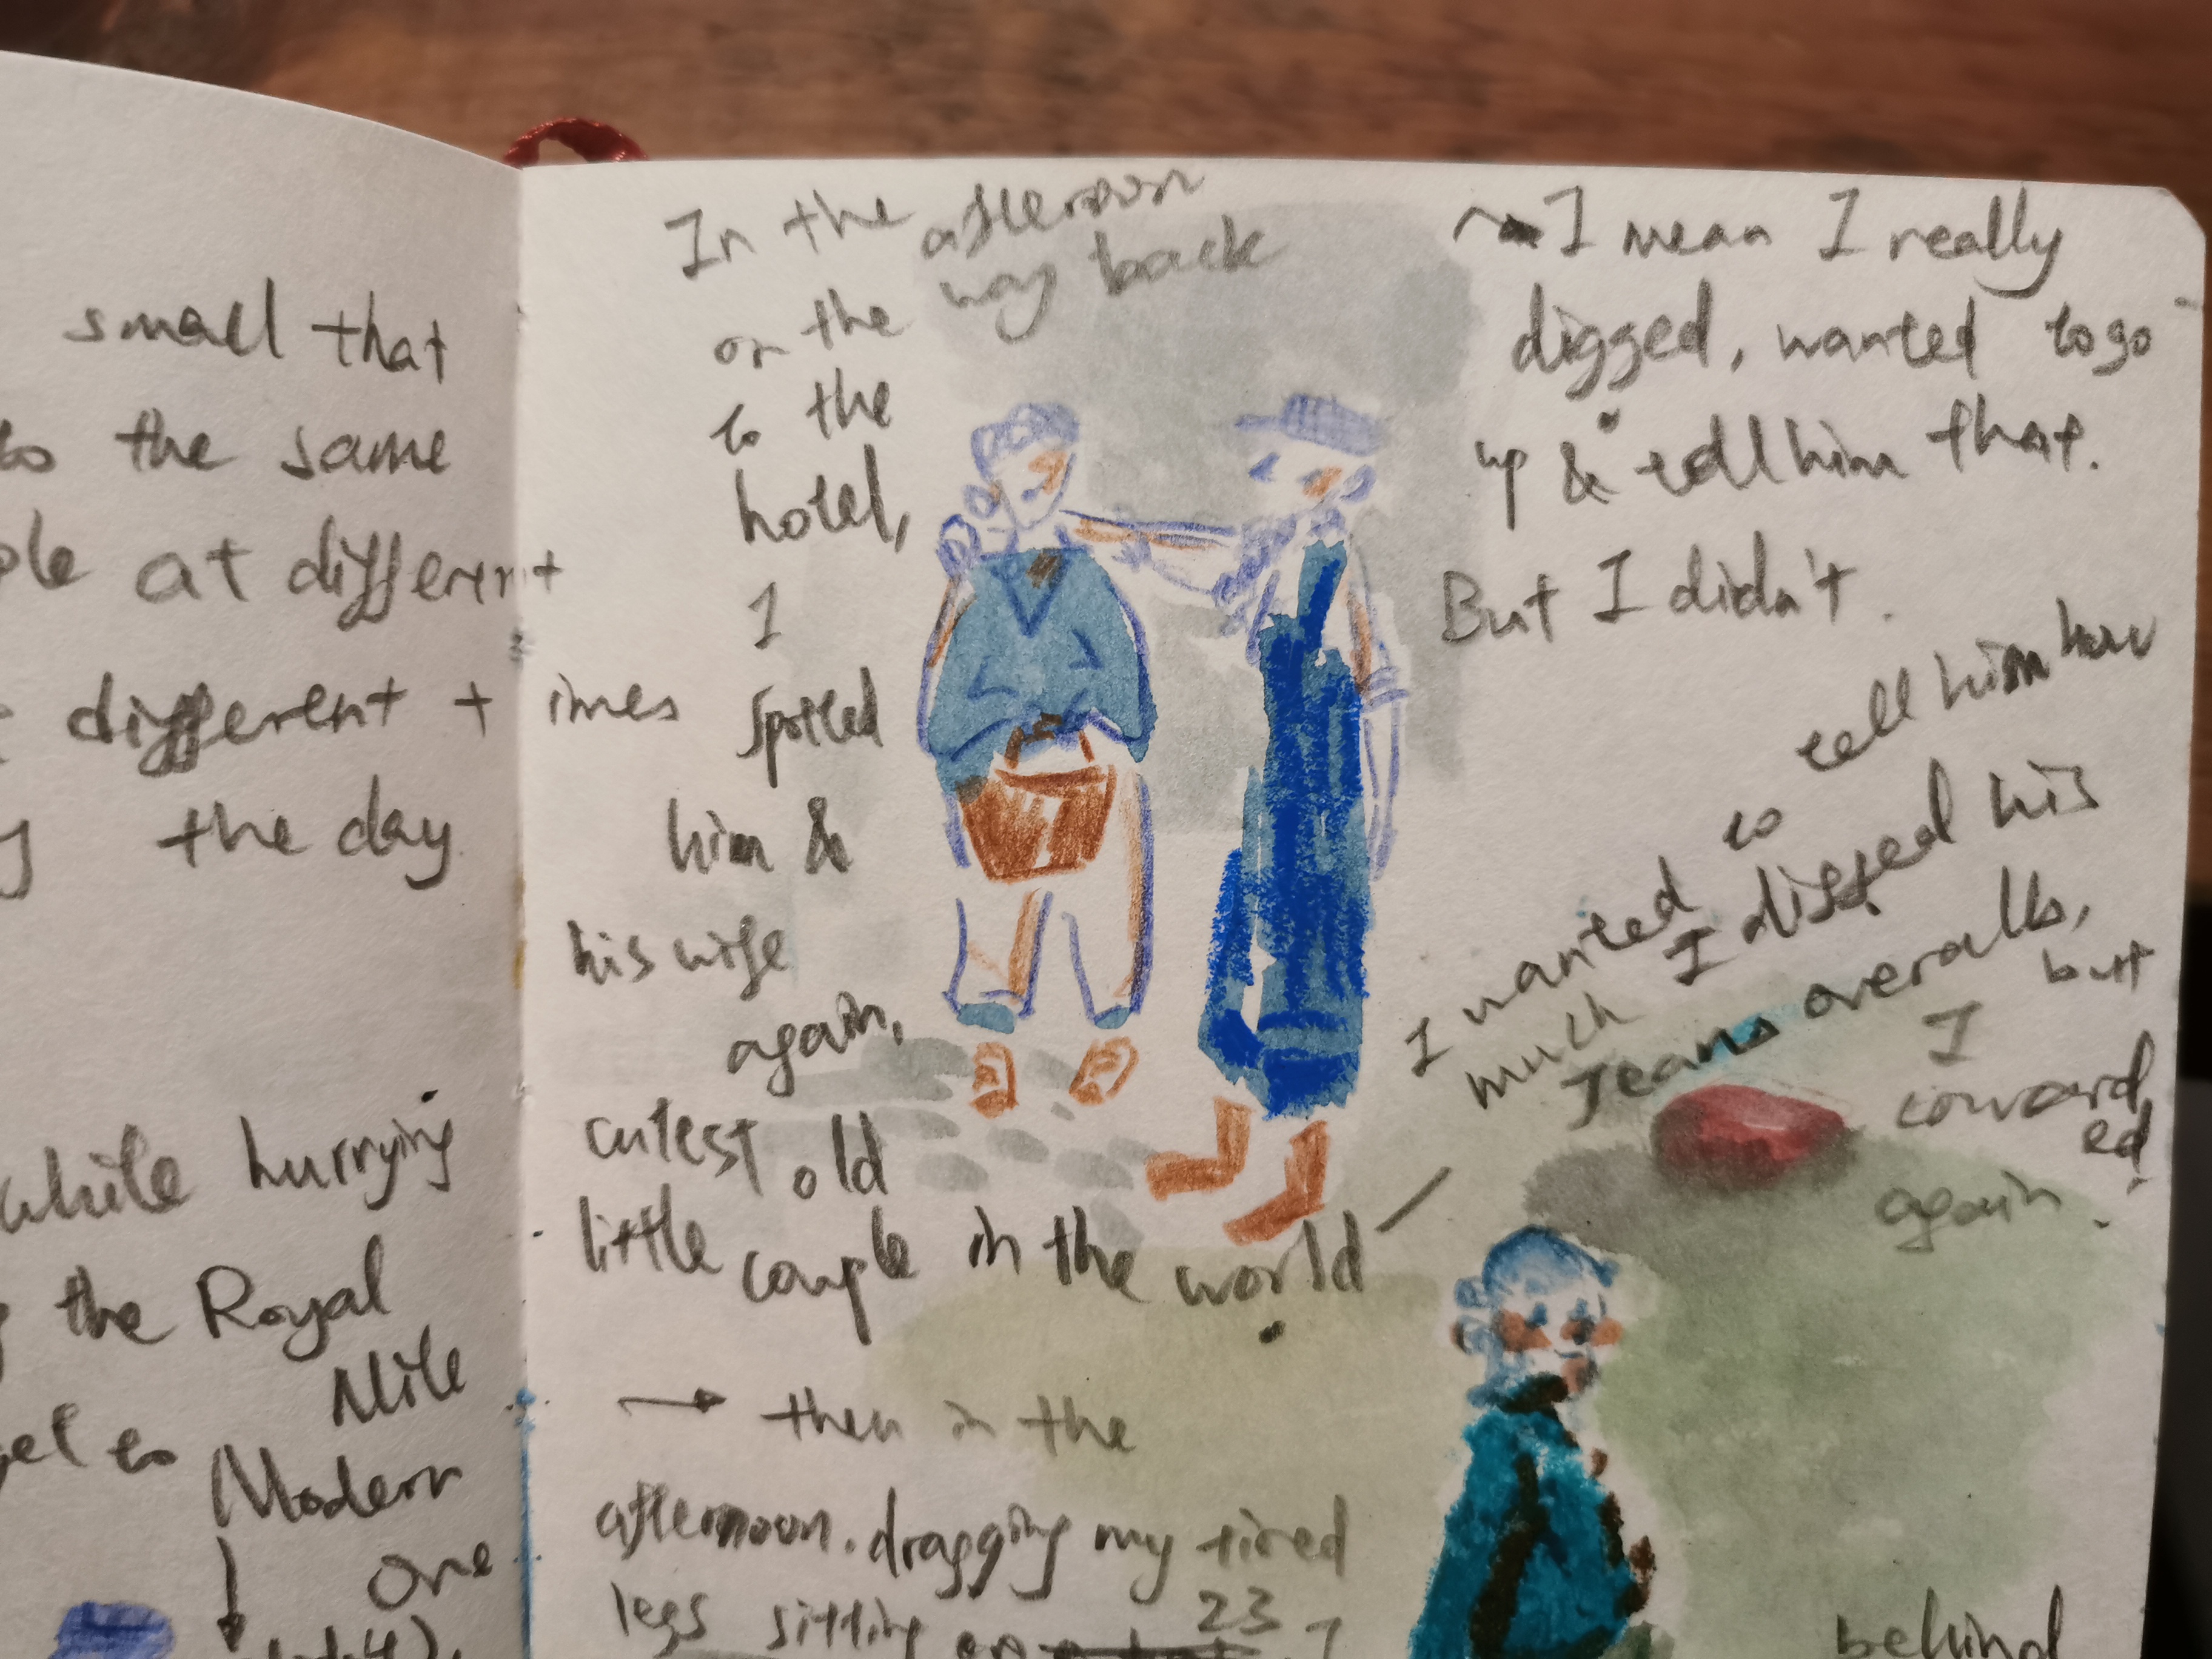 small that
to the same
at different
different times
the day
while hurrying
the Royal
Mile
to
Modern
one
In the afternoon
on the way back
to the
hotel,
I
spotted
him &
his wife
again,
cutest old
little couple in the world
~ I mean I really
digged, wanted to go
up & tell him that.
But I didn't.
I wanted to tell him how
much I digged his
Jeans overalls,
but
I
coward
ed
again.
→ then in the
afternoon. dragging my tired
legs sitting on
23
I
behind